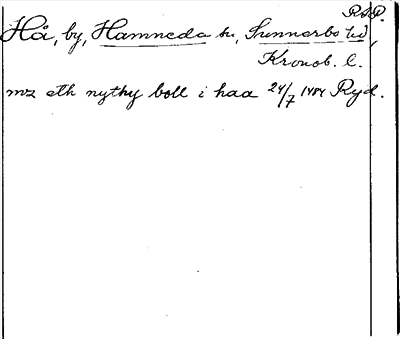 R.S.P.
Hå, by, Hamneda sn, Sunnerbo hd,
Kronob. l.
mz eth nythy boll i haa 24/7 1484 Ryd.